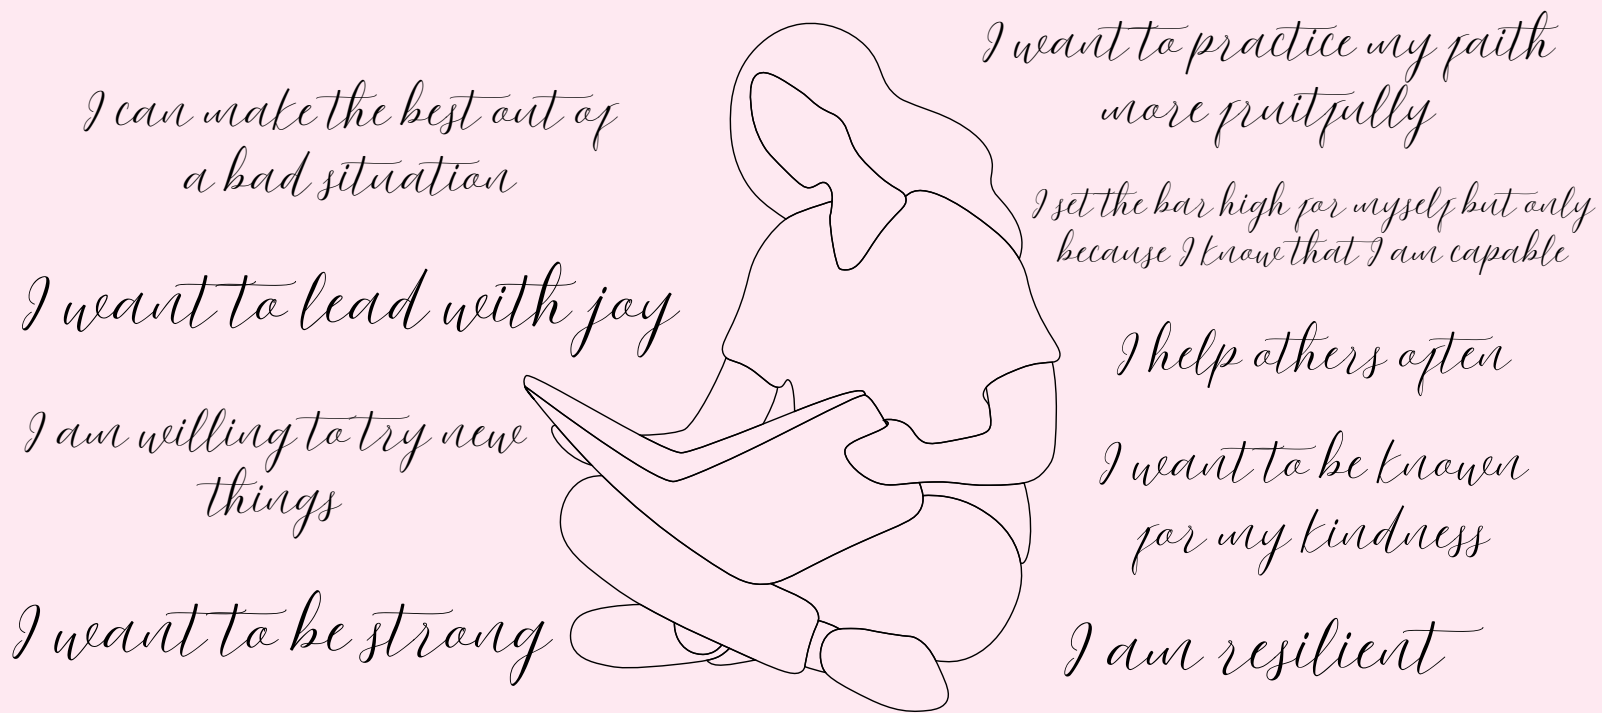 I can make the best out of
a bad situation
I want to lead with joy
I am willing to try new
things
I want to be strong
I want to practice my faith
more fruitfully
I set the bar high for myself but only
because I know that I am capable
I help others often
I want to be known
for my kindness
I am resilient